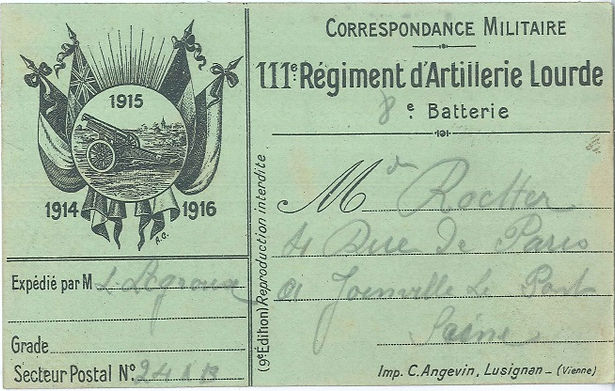 CORRESPONDANCE MILITAIRE
111e Régiment d'Artillerie Lourde
8e Batterie
1915
1914 1916
A.G.
(9e Edition) Reproduction interdite
Mde
4 Rue de Paris
à Joinville Le Pont
Seine
Expédié par M L Legroux
Grade
Secteur Postal No.
Imp. C. Angevin, Lusignan - (Vienne)